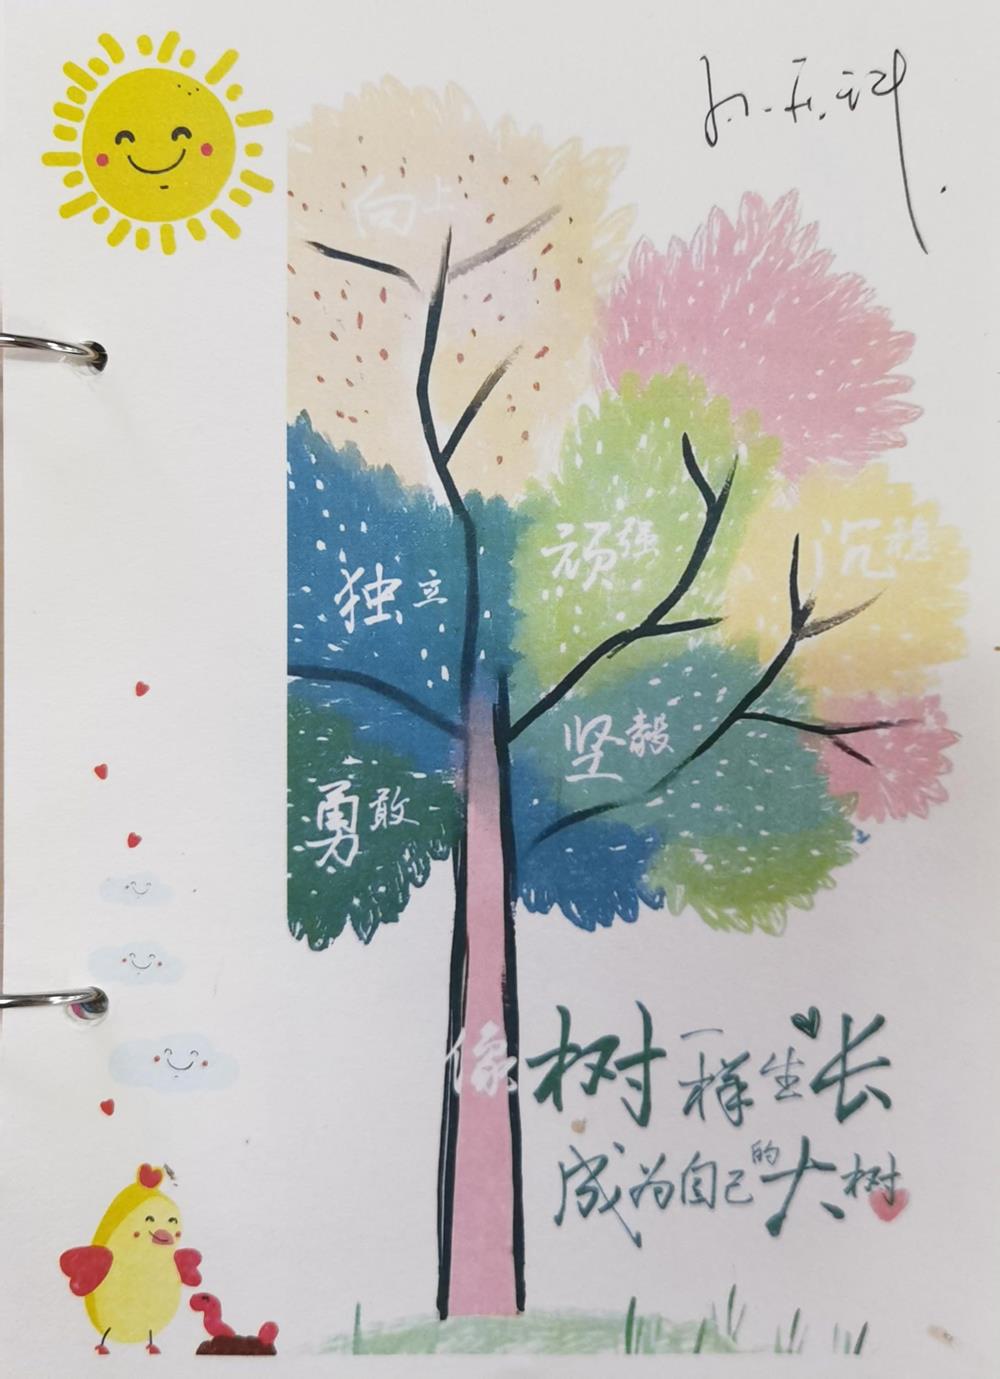 向上
独立
顽强
沉稳
坚毅
勇敢
像树一样生长
成为自己的大树